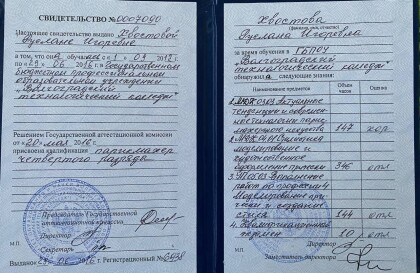 СВИДЕТЕЛЬСТВО № 0007090
Настоящее свидетельство выдано Хвостовой
Руслане Игоревне
в том, что она обучалась с 1 09 2012 г.
по 29 06 2016 г. в Государственном
бюджетном профессиональном
образовательном учреждении
"Волгоградский
технологический колледж"
Решением Государственной аттестационной комиссии
от «20» мая 2016 г.
присвоена квалификация парикмахер
четвертого разряда
Председатель Государственной
аттестационной комиссии
Директор
Секретарь
М.П.
Выдано 29 06 2016 г. Регистрационный №
Хвостова
Руслана Игоревна
за время обучения в ГБПОУ
"Волгоградский
технологический колледж"
обнаружила следующие знания:
Наименование предметов
Объем часов
Оценка
тенденции и
технологии парик-
махерского искусства 147 хор
моделирование и
художественное
оформление прически 346 отл
Выполнение
работ по профессии
Моделирование при-
чёски и создание
стиля 144 отл
4. Квалификационный
экзамен 10 отл
Директор
Заместитель директора
М.П.